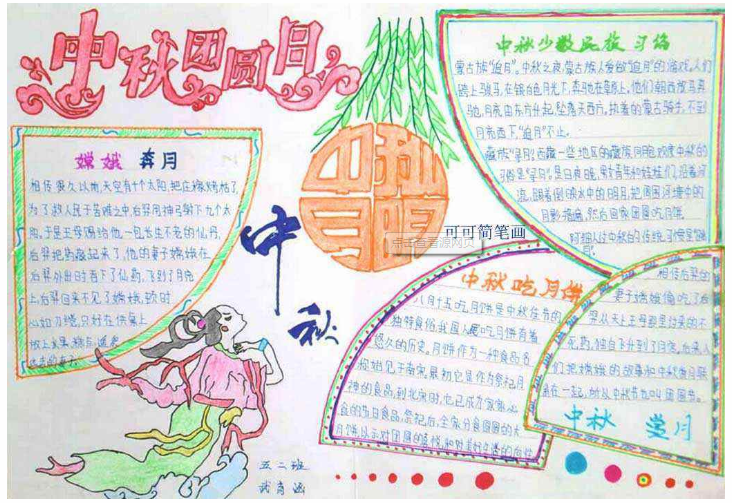 中秋团圆月
嫦娥 奔月
相传很久以前,天空有十个太阳,把庄稼烤枯了,
为了救人民于苦难之中,后羿用神弓射下九个太
阳,于是王母赐给他一包长生不老的仙丹,
后羿把药藏起来了,他的妻子嫦娥在
后羿外出时吞下了仙药,飞到了月宫
上,后羿回来不见了嫦娥,顿时
心如刀绞,只好在供案上
放上水果
中秋
中秋月明
可可简笔画
点击查看源网页
中秋少数民族习俗
蒙古族“追月”。中秋之夜,蒙古族人爱做“追月”的游戏,人们
跨上骏马,在银白色月光下,奔驰在草原上,他们朝西放马奔
驰,月亮由东方升起,坠落天西方,执着的蒙古骑手,不到
月亮西下,“追月”不止。
藏族“寻月”。西藏一些地区的藏族同胞欢度中秋的
习俗是“寻月”。是日夜晚,男女青年和娃娃们,沿着河
流,跟着倒映水中的明月,把周围河塘中的
月影,然后回家团圆吃月饼
中秋吃月饼
八月十五吃月饼是中秋佳节的
独特食俗,我国人吃月饼有着
悠久的历史。月饼作为一种食品名
称,始见于南宋,最初它是作为祭祀月
神的食品,到北宋时,它已成为家
的节日食品,祭祀后,全家分食圆圆的大
月饼以示对团圆的
相传后羿的
妻子嫦娥偷吃了后
羿从天上王母那里讨来的不
死药,独自飞升到了月宫,后来人
们把嫦娥的故事和中秋赏月联
系在一起,所以中秋节也叫团圆节。
中秋 赏月
五二班